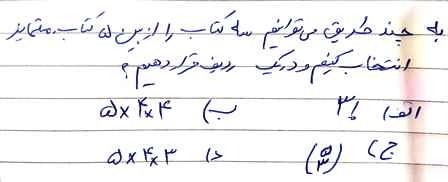 به چند طریق می‌توانیم سه کتاب را از بین ۵ کتاب متمایز
انتخاب کنیم و در یک ردیف قرار دهیم؟
الف) ۳! ب) ۵×۴×۴
ج) (۵ ۳) د) ۵×۴×۳